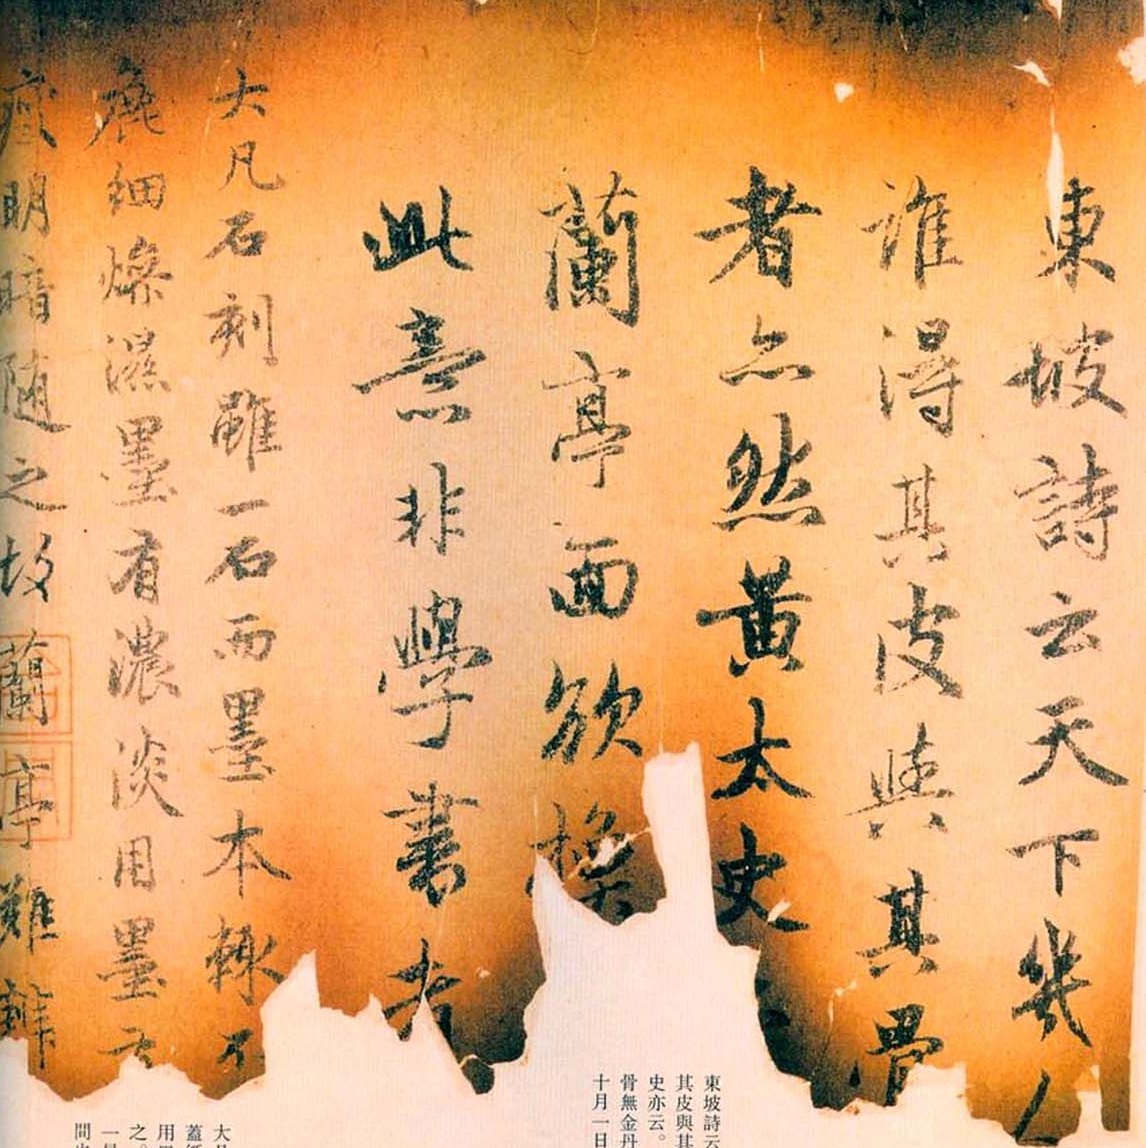 東坡詩云天下幾人
誰得其皮與其骨
者亦然黃太史
蘭亭面欲換
此意非學書者
大凡石刻雖一石而墨本輒不
麄細燥濕墨有濃淡用墨
明暗隨之故蘭亭難辨
東坡詩云
其皮與其
史亦云。
骨無金丹
十月一日
大凡
用
之。
一
間